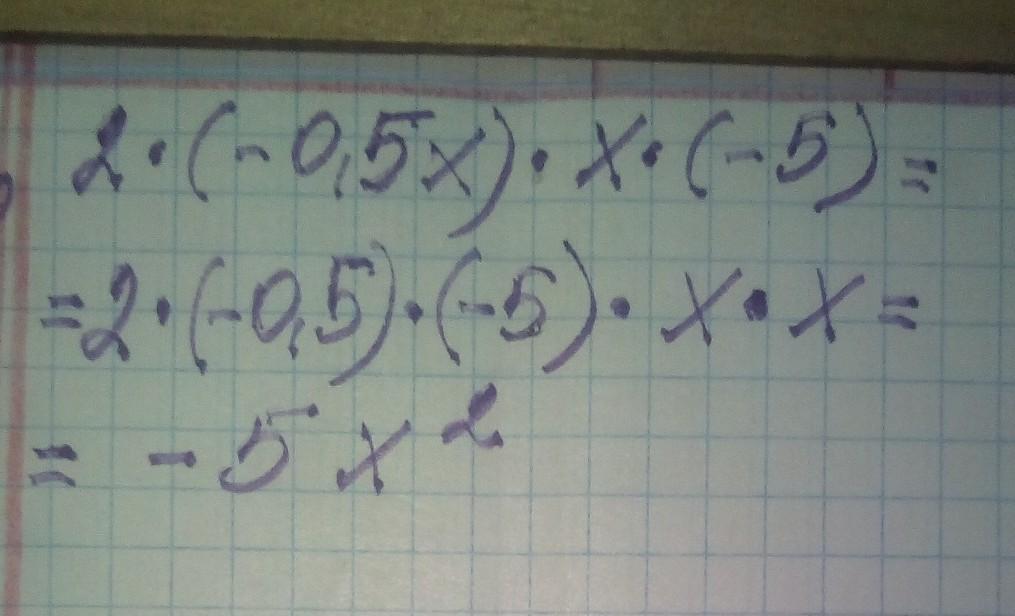 2·(-0,5x)·x·(-5)=
=2·(-0,5)·(-5)·x·x=
=-5x²